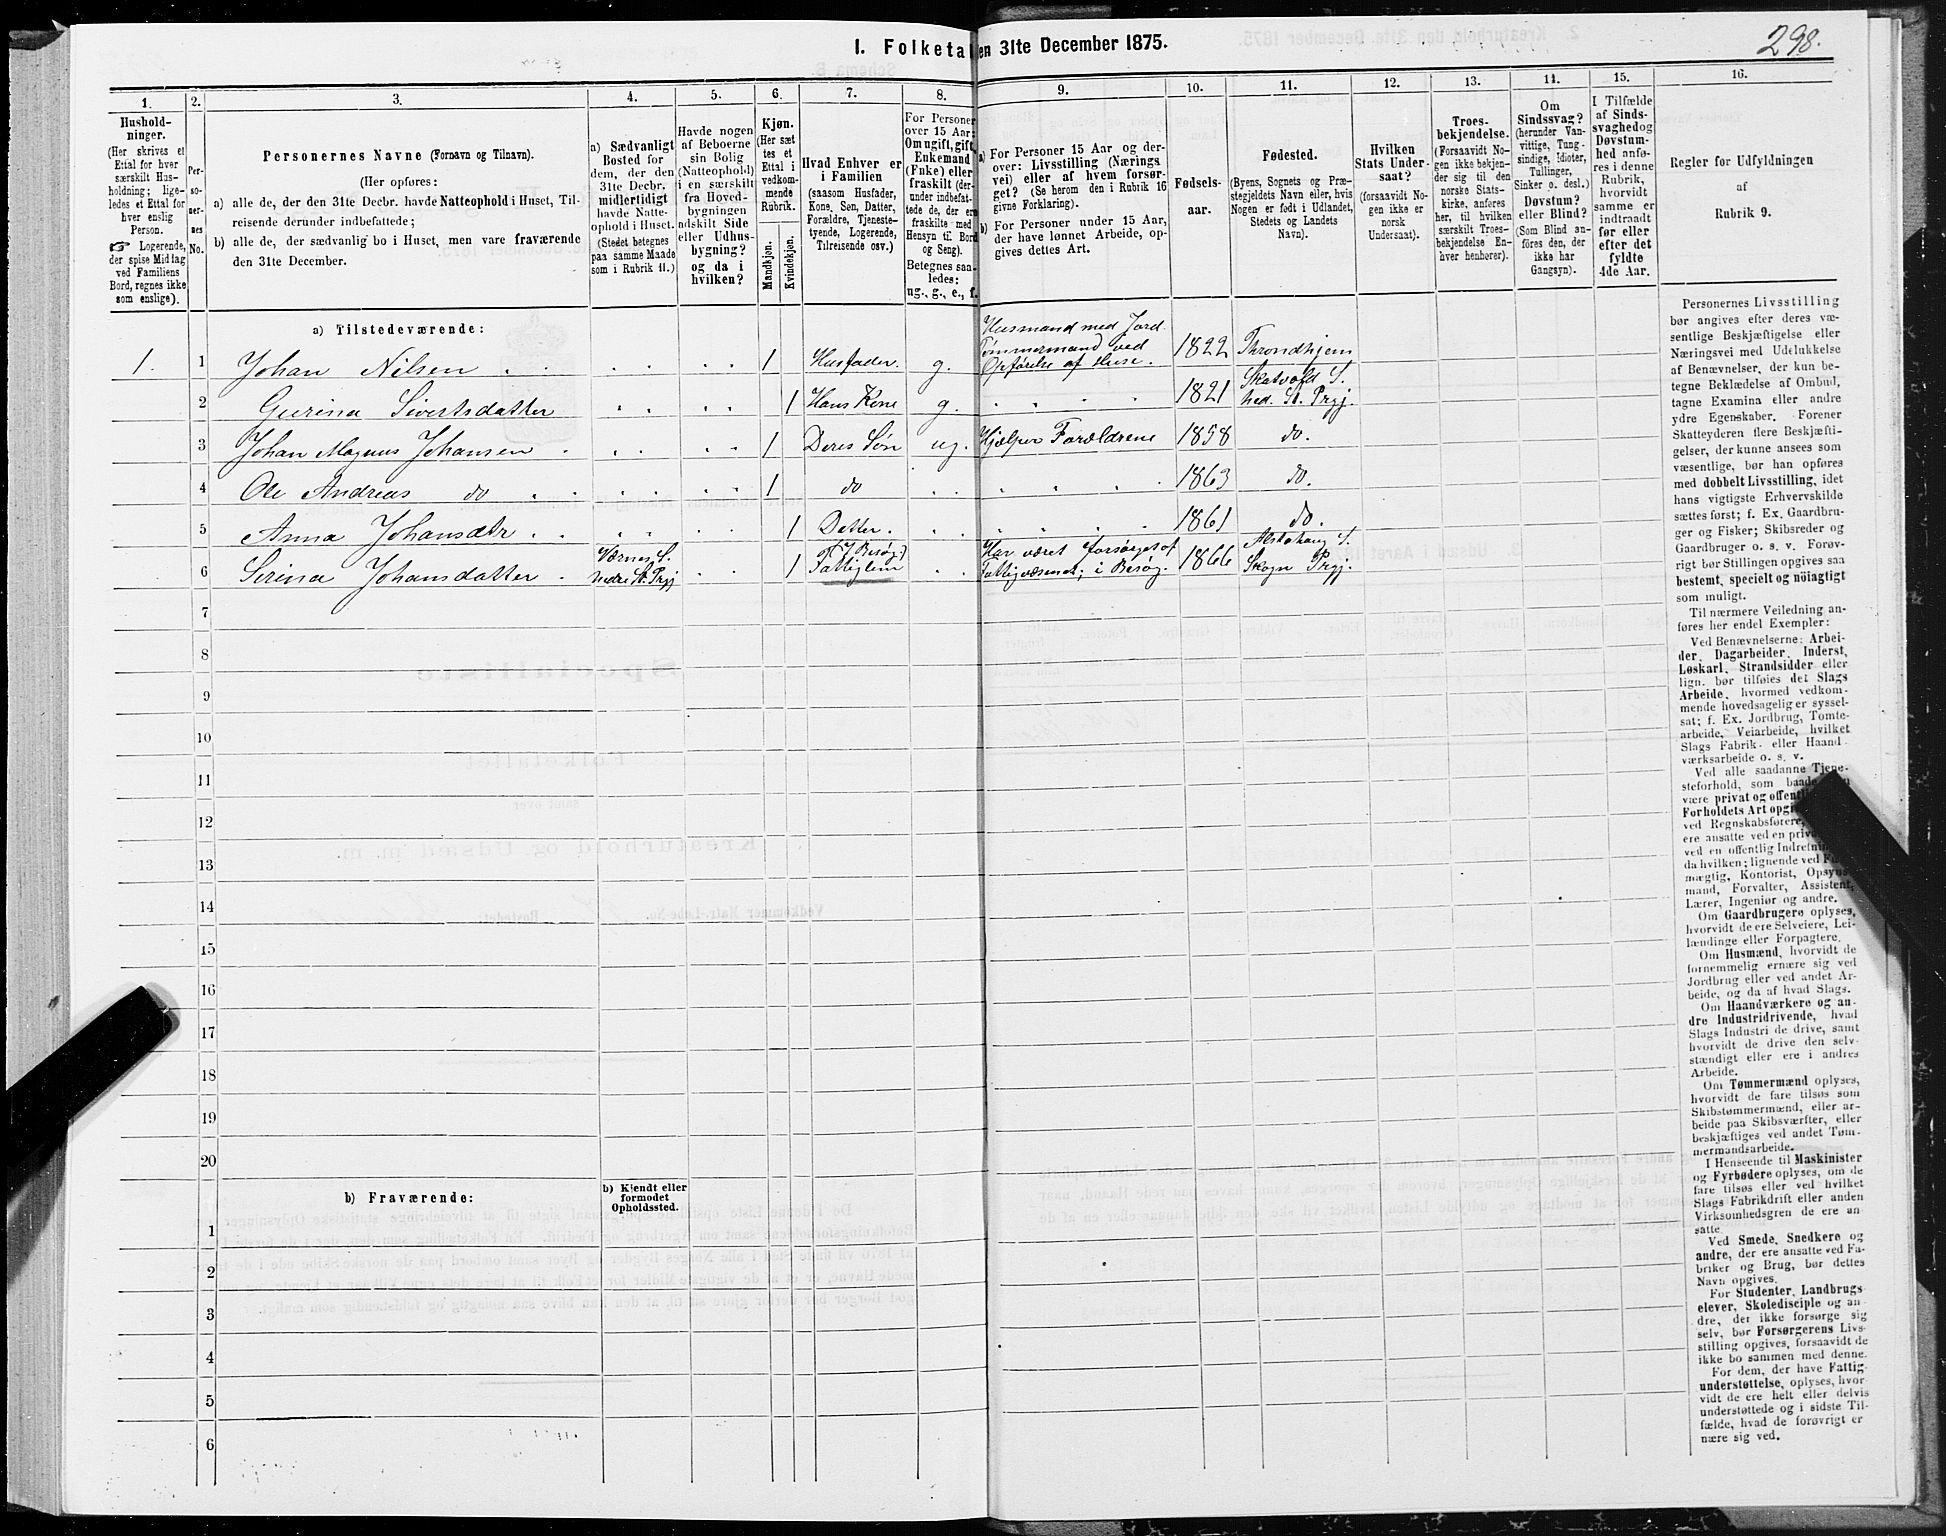 298.
I. Folketa en 31te December 1875.
1.
Hushold-
ninger.
(Her skrives et
Ettal for hver
særskilt Hus-
holdning; lige-
ledes et Ettal for
hver enslig
Person.
☞ Logerende,
der spise Middag
ved Familiens
Bord, regnes ikke
som enslige).
2.
Per-
so-
ner-
nes
No.
3.
Personernes Navne (Fornavn og Tilnavn).
(Her opføres:
a) alle de, der den 31te Decbr. havde Natteophold i Huset, Til-
reisende derunder indbefattede;
b) alle de, der sædvanlig bo i Huset, men vare fraværende
den 31te December.
4.
a) Sædvanligt
Bosted for
dem, der den
31te Decbr.
midlertidigt
havde Natte-
ophold i Huset.
(Stedet betegnes
paa samme Maade
som i Rubrik 11.)
5.
Havde nogen
af Beboerne
sin Bolig
(Natteophold)
i en særskilt
fra Hoved-
bygningen
adskilt Side
eller Udhus-
bygning?
og da i
hvilken?
6.
Kjøn.
(Her sæt
tes et
Ettal i
vedkom-
mende
Rubrik.
Mandkjøn.
Kvindekjøn.
7.
Hvad Enhver er
i Familien
(saasom Husfader,
Kone, Søn, Datter,
Forældre, Tjeneste-
tyende, Logerende,
Tilreisende osv.)
8.
For Personer
over 15 Aar:
Om ugift, gift,
Enkemand
(Enke) eller
fraskilt (der-
under indbefat-
tede de, der er
fraskilte med
Hensyn til Bord
og Seng).
Betegnes saa-
ledes:
ug., g., e., f.
9.
a) For Personer 15 Aar og der-
over: Livsstilling (Nærings
vei) eller af hvem forsør-
get? (Se herom den i Rubrik 16
givne Forklaring).
b) For Personer under 15 Aar,
der have lønnet Arbeide, op-
gives dettes Art.
10.
Fødsels-
aar.
11.
Fødested.
(Byens, Sognets og Præ-
stegjeldets Navn eller, hvis
Nogen er født i Udlandet,
Stedets og Landets
Navn).
12.
Hvilken
Stats Under-
saat?
(forsaavidt No-
gen ikke er
norsk
Undersaat).
13.
Troes-
bekjendelse.
(Forsaavidt No-
gen ikke bekjen-
der sig til den
norske Stats-
kirke, anføres
her, til hvilken
særskilt Troes-
bekjendelse En-
hver henhører).
14.
Om
Sindssvag?
(herunder Van-
vittige, Tung-
sindige, Idioter,
Tullinger,
Sinker o. desl.)
Døvstum?
eller Blind?
(Som Blind an-
føres den, der
ikke har
Gangsyn).
15.
I Tilfælde
af Sinds-
svaghed og
Døvstum-
hed anfø-
res i denne
Rubrik,
hvorvidt
samme er
indtraadt
før eller
efter det
fyldte
4de Aar.
16.
Regler før Udfyldningen
af
Rubrik 9.
a) Tilstedeværende:
1. 1 Johan Nilsen 1 Husfader. g. Husmand med Jord. Tømmermand ved Opførelse af Huse. 1822 Throndhjem
2 Gurina Sivertsdatter 1 Hans Kone g. 1821 Skatvold S. Ned. St. Prgj.
3 Johan Magnus Johansen 1 Deres Søn ug. Hjælper Forældrene 1858 do.
4 Ole Andreas do 1 do 1863 do.
5 Anna Johansdtr 1 Datter. 1861 do.
6 Serina Johansdatter Værnes S. Nedre St. Prgj 1 (I Besøg) Fattiglem Har været forsørget af Fattigvæsenet; i Besøg. 1866 Alstahaug S. Skogn Prgj.
7
8
9
10
11
12
13
14
15
16
17
18
19
20
b) Fraværende:
b) Kjendt eller
formodet
Opholdssted.
1
2
3
4
5
6
Personernes Livsstilling
bør angives efter deres væ-
sentlige Beskjæftigelse eller
Næringsvei med Udelukkelse
af Benævnelser, der kun be-
tegne Beklædelse af Ombud,
tagne Examina eller andre
ydre Egenskaber. Forener
Skatteyderen flere Beskjæfti-
gelser, der kunne ansees som
væsentlige, bør han opføres
med dobbelt Livsstilling, idet
hans vigtigste Erhvervskilde
sættes først; f. Ex. Gaardbru-
ger og Fisker; Skibsreder og
Gaardbruger o. s. v. Forøv-
rigt bør Stillingen opgives saa
bestemt, specielt og nöiagtigt
som muligt.
Til nærmere Veiledning an-
føres her endel Exempler:
Ved Benævnelserne: Arbei-
der, Dagarbeider, Inderst,
Løskarl, Strandsidder eller
lign. bør tilføies det Slags
Arbeide, hvormed vedkom-
mende hovedsagelig er syssel-
sat; f. Ex. Jordbrug, Tomte-
arbeide, Veiarbeide, hvilket
Slags Fabrik- eller Haand-
værksarbeide o. s. v.
Ved alle saadanne Tjene-
steforhold, som baade
være privat og offentl
Forholdets Art opg
ved Regnskabsførere,
ere ansatte ved en priv
ved en offentlig Indretnin
da hvilken; lignende ved F
mægtig, Kontorist, Opsyns
mand, Forvalter, Assistent,
Lærer, Ingeniør og andre.
Om Gaardbrugere oplyses,
hvorvidt de ere Selveiere, Lei-
lændinge eller Forpagtere.
Om Husmænd, hvorvidt de
fornemmelig ernære sig ved
Jordbrug eller ved andet Ar-
beide, og da af hvad Slags.
Om Haandværkere og an-
dre Industridrivende, hvad
Slags Industri de drive, samt
hvorvidt de drive den selv-
stændigt eller ere i andres
Arbeide.
Om Tømmermænd oplyses,
hvorvidt de fare tilsøs som
Skibstømmermænd, eller ar-
beide paa Skibsværfter, eller
beskjæftiges ved andet Tøm-
mermandsarbeide.
I Henseende til Maskinister
og Fyrbødere oplyses, om de
fare tilsøs eller ved hvilket
Slags Fabrikdrift eller anden
Virksomhedsgren de ere an
satte
Ved Smede, Snedkere og
andre, der ere ansatte ved Fa-
briker og Brug, bør dettes
Navn opgives.
For Studenter, Landbrugs
elever, Skoledisciple og an-
dre, der ikke forsørge sig
selv, bør Forsørgerens Livs-
stilling opgives, forsaavidt de
ikke bo sammen med denne.
For dem, der have Fattig-
understøttelse, oplyses, hvor-
vidt de ere helt eller delvis
understøttede og i sidste Til-
fælde, hvad de forøvrigt er
nære sig ved.